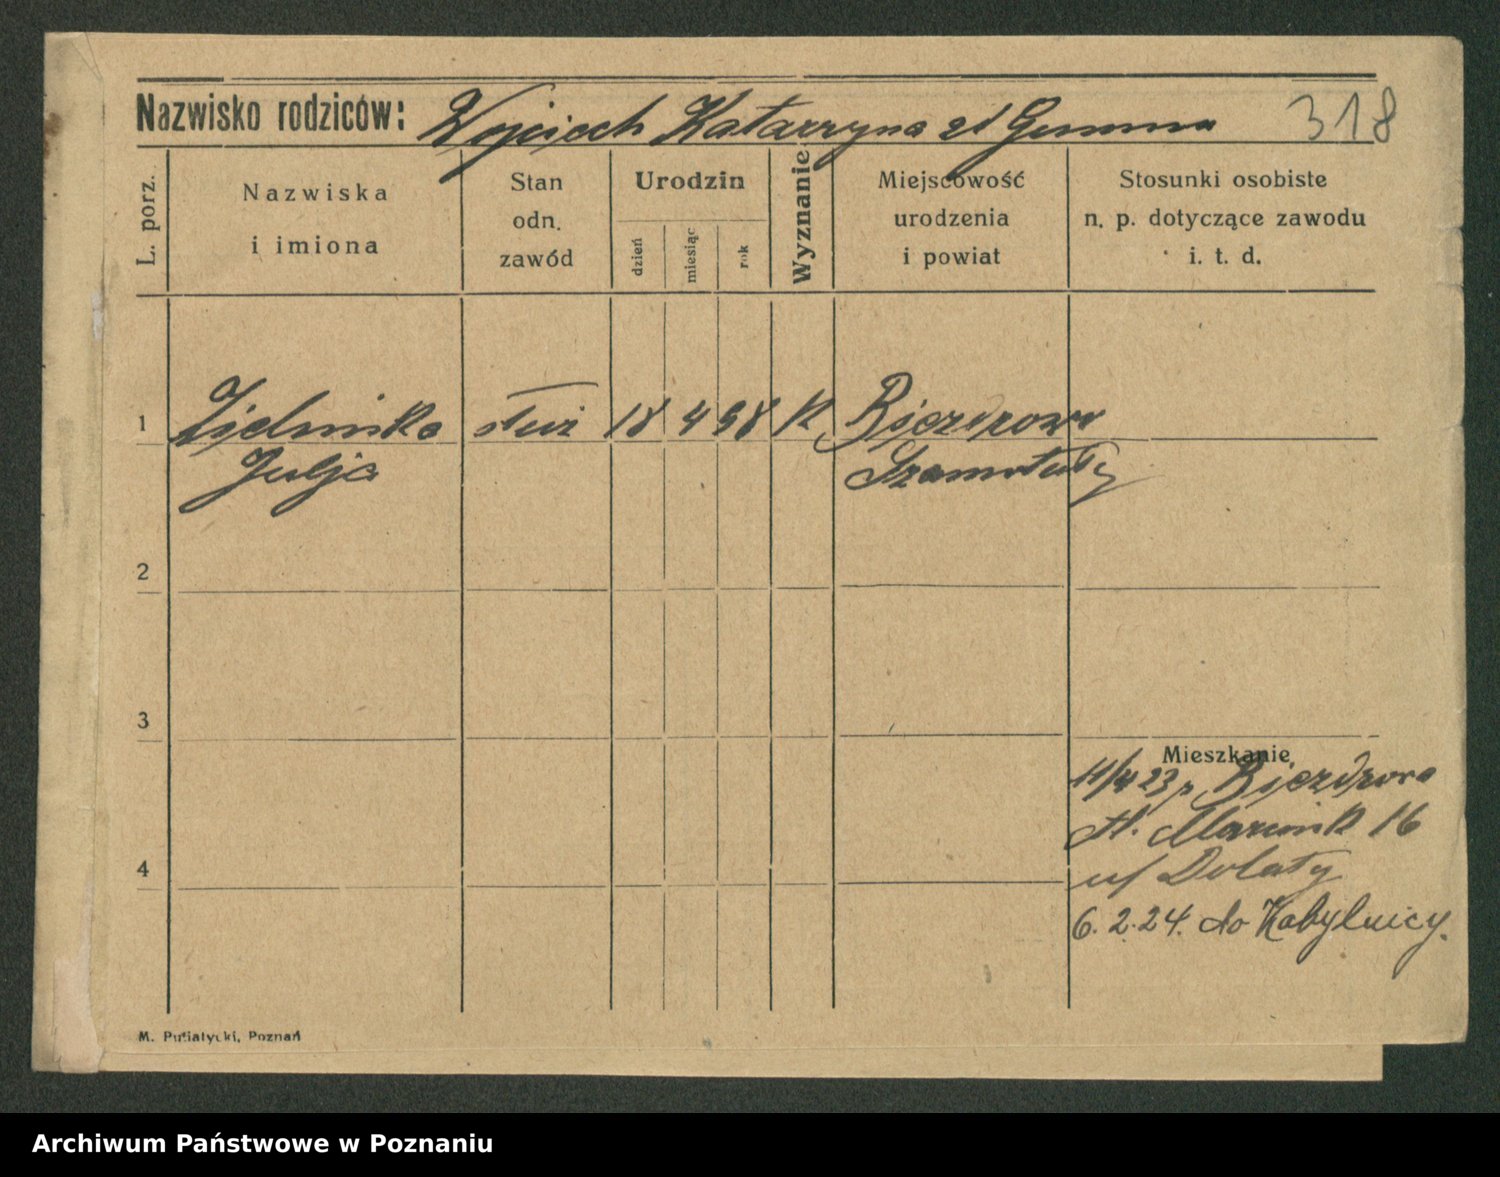 Nazwisko rodziców: Wojciech Katarzyna zd Gumna 318
L. porz.
Nazwiska
i imiona
Stan
odn.
zawód
Urodzin
dzień
miesiąc
rok
Wyznanie
Miejscowość
urodzenia
i powiat
Stosunki osobiste
n. p. dotyczące zawodu
i. t. d.
1 Zielinska służ 18 4 98 K Bjezdrowo
Julja Szamotuły
2
3
Mieszkanie
11/4 23 z Bjezdrowa
St. Marcink 16
u/ Dolaty
4
6. 2. 24. do Kobylnicy.
M. Putiatycki, Poznań
Archiwum Państwowe w Poznaniu